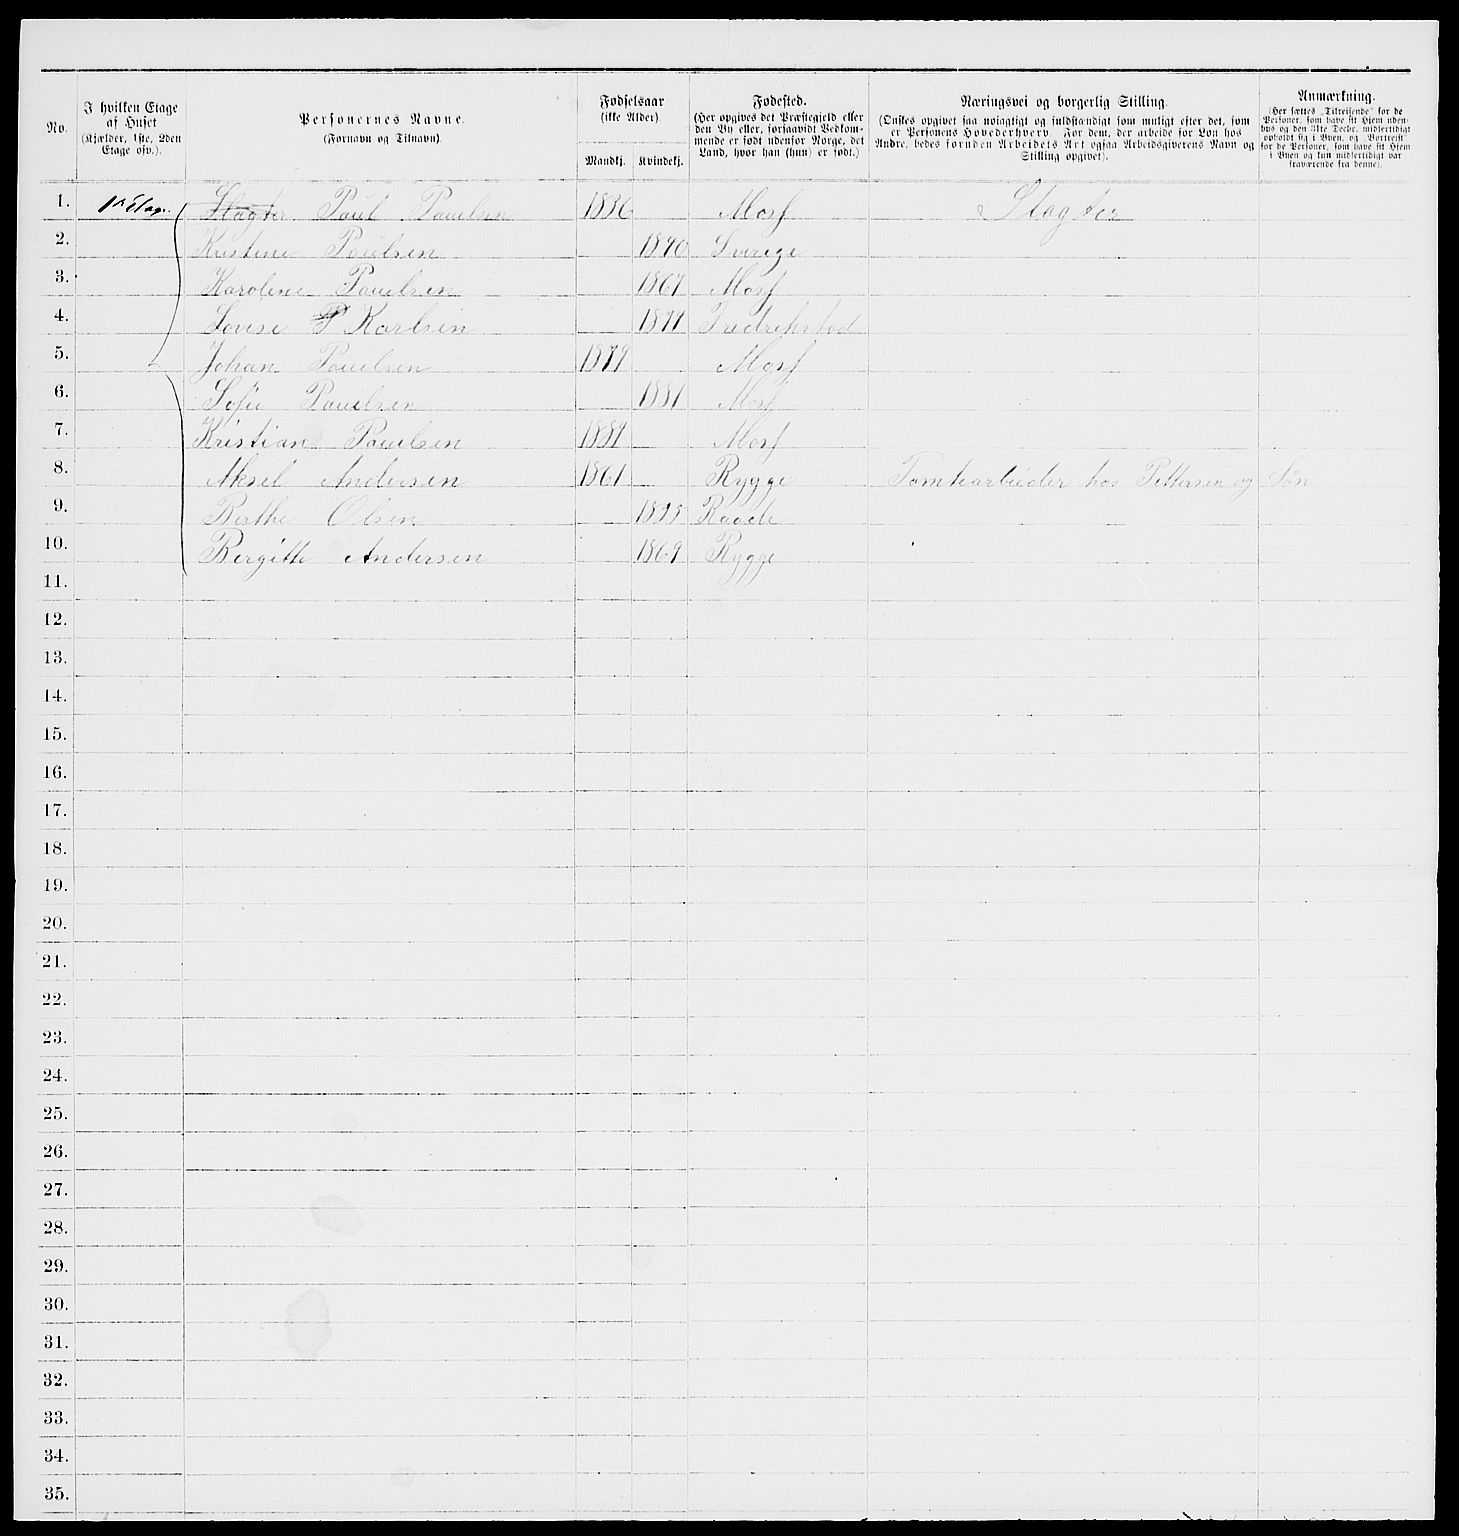 No.
I hvilken Etage
af Huset
(Kjælder, 1ste, 2den
Etage osv.).
Personernes Navne.
(Fornavn og Tilnavn).
Fødselsaar
(ikke Alder).
Mandkj. Kvindekj.
Fødested.
(Her opgives det Præstegjeld eller
den By eller, forsaavidt Vedkom-
mende er født udenfor Norge, det
Land, hvor han (hun) er født.)
Næringsvei og borgerlig Stilling.
(Ønskes opgivet saa nøiagtigt og fuldstændigt som muligt efter det, som
er Personens Hovederhverv. For dem, der arbeide for Løn hos
Andre, bedes foruden Arbeidets Art ogsaa Arbeidsgiverens Navn og
Stilling opgivet).
Anmærkning.
(Her sættes „Tilreisende" for de
Personer, som have sit Hjem uden-
bys og den 31te Decbr. midlertidigt
opholdt sig i Byen, og „Bortreist"
for de Personer, som have sit Hjem
i Byen og kun midlertidigt var
fraværende fra denne).
1. 1ste Etage. Slagter Paul Paulsen 1836 Moss Slagter
2. Kristine Paulsen Sverige
3. Karoline Paulsen 1867 Moss
4. Lovise P Karlsen Fredrikstad
5. Johan Paulsen 1879 Moss
6. Sofie Paulsen 1881 Moss
7. Kristian Paulsen Moss
8. Aksel Andersen 1861 Rygge Tomtearbeider hos Pettersen og Søn
9. Berthe Olsen Raade
10. Bergitte Andersen 1869 Rygge
11.
12.
13.
14.
15.
16.
17.
18.
19.
20.
21.
22.
23.
24.
25.
26.
27.
28.
29.
30.
31.
32.
33.
34.
35.